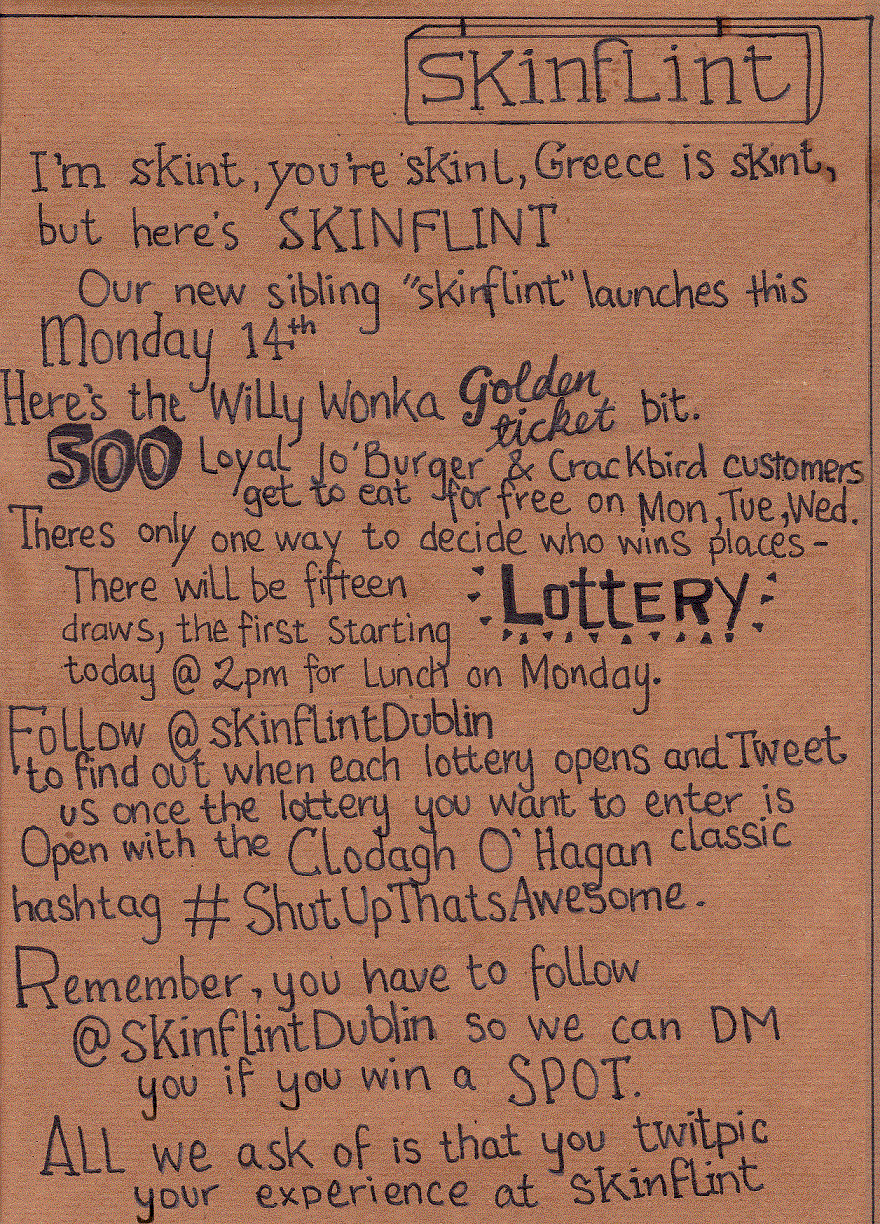 SKinfLint
I'm skint, you're skint, Greece is skint,
but here's SKINFLINT
Our new sibling "skinflint" launches this
Monday 14th
Here's the Willy Wonka Golden ticket bit.
500 Loyal Jo'Burger & Crackbird customers
get to eat for free on Mon, Tue, Wed.
Theres only one way to decide who wins places -
There will be fifteen LottERy
draws, the first starting
today @ 2pm for Lunch on Monday.
Follow @skinflintDublin
to find out when each lottery opens and Tweet
us once the lottery you want to enter is
Open with the Clodagh O'Hagan classic
hashtag #ShutUpThatsAwesome.
Remember, you have to follow
@SkinflintDublin so we can DM
you if you win a SPOT.
ALL we ask of is that you twitpic
your experience at skinflint